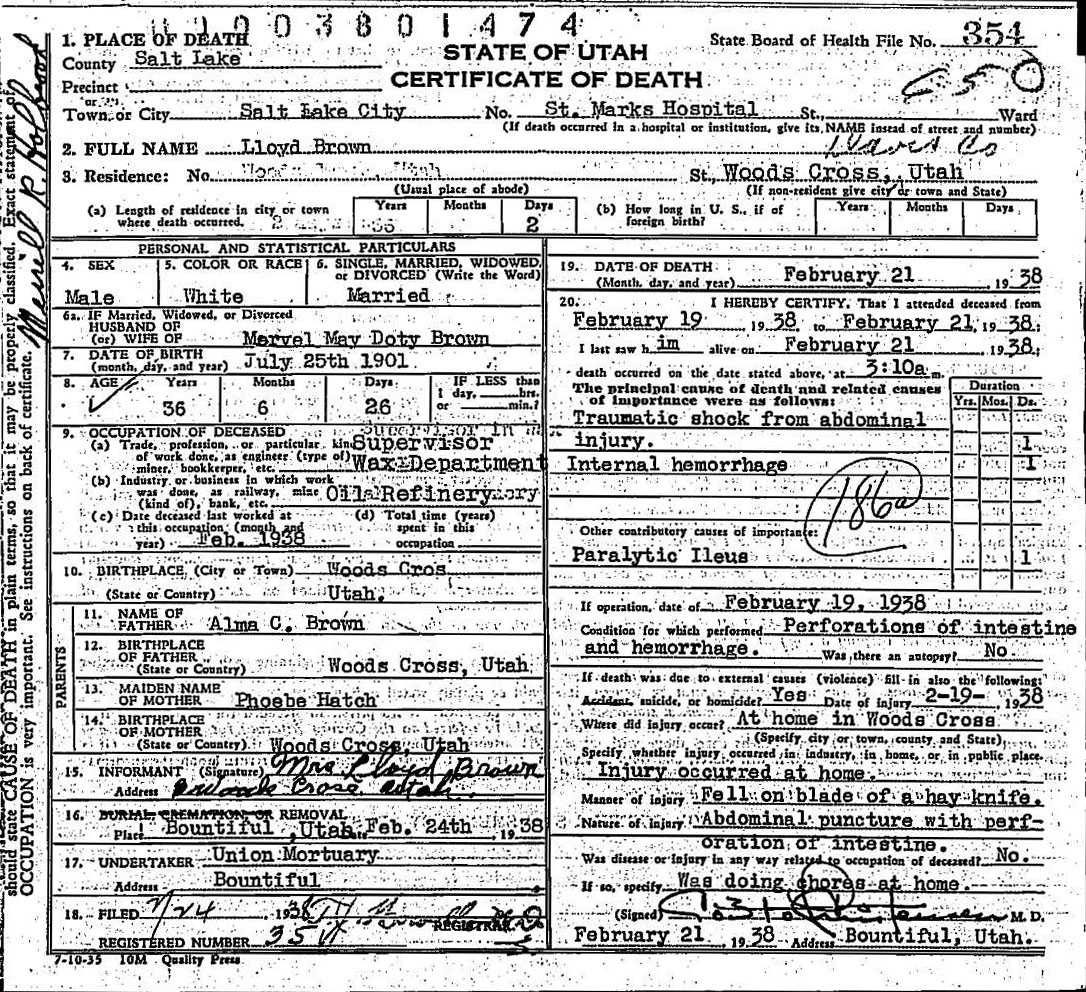 01003801474
1. PLACE OF DEATH
STATE OF UTAH
CERTIFICATE OF DEATH
State Board of Health File No. 354
County Salt Lake
Precinct
or
Town or City Salt Lake City No. St. Marks Hospital St., Ward
(If death occurred in a hospital or institution, give its NAME insead of street and number)
2. FULL NAME Lloyd Brown
Davis Co
3. Residence: No. St. Woods Cross, Utah
(Usual place of abode) (If non-resident give city or town and State)
(a) Length of residence in city or town where death occurred. Years 36 Months Days 2
(b) How long in U. S., if of foreign birth? Years Months Days
PERSONAL AND STATISTICAL PARTICULARS
4. SEX 5. COLOR OR RACE 6. SINGLE, MARRIED, WIDOWED, or DIVORCED (Write the Word)
Male White Married
6a. IF Married, Widowed, or Divorced
HUSBAND OF
(or) WIFE OF Mervel May Doty Brown
7. DATE OF BIRTH
(month, day, and year) July 25th 1901
8. AGE Years Months Days IF LESS than
1 day, hrs.
or min.?
36 6 26
9. OCCUPATION OF DECEASED
(a) Trade, profession, or particular kind
of work done, as engineer (type of)
miner, bookkeeper, etc.
Supervisor
Wax Department
(b) Industry or business in which work
was done, as railway, mine
(kind of), bank, etc.
Oil Refinery
(c) Date deceased last worked at
this occupation (month and
year) Feb. 1938
(d) Total time (years)
spent in this
occupation
10. BIRTHPLACE (City or Town) Woods Cros
(State or Country) Utah.
PARENTS
11. NAME OF
FATHER Alma C. Brown
12. BIRTHPLACE
OF FATHER
(State or Country) Woods Cross, Utah
13. MAIDEN NAME
OF MOTHER Phoebe Hatch
14. BIRTHPLACE
OF MOTHER
(State or Country) Woods Cross, Utah
15. INFORMANT (Signature) Mrs Lloyd Brown
Address Woods Cross Utah
16. BURIAL, CREMATION, OR REMOVAL
Place Bountiful, Utah Feb. 24th 1938
17. UNDERTAKER Union Mortuary
Address Bountiful
18. FILED 2/24 1938
REGISTRAR
REGISTERED NUMBER 354
7-10-35 10M Quality Press
19. DATE OF DEATH
(Month, day, and year) February 21, 1938
20. I HEREBY CERTIFY, That I attended deceased from
February 19 1938 to February 21, 1938;
I last saw him alive on February 21 1938;
death occurred on the date stated above, at 3:10a m.
The principal cause of death and related causes
of importance were as follows:
Duration
Yrs. Mos. Ds.
Traumatic shock from abdominal
injury. 1
Internal hemorrhage 1
186a
Other contributory causes of importance:
Paralytic Ileus 1
If operation, date of February 19, 1938
Condition for which performed Perforations of intestine
and hemorrhage. Was there an autopsy? No.
If death was due to external causes (violence) fill in also the following:
Accident, suicide, or homicide? Yes Date of injury 2-19- 1938
Where did injury occur? At home in Woods Cross
(Specify city or town, county and State)
Specify whether injury occurred in industry, in home, or in public place.
Injury occurred at home.
Manner of injury Fell on blade of a hay knife.
Nature of injury Abdominal puncture with perf-
oration of intestine.
Was disease or injury in any way related to occupation of deceased? No.
If so, specify Was doing chores at home.
(Signed) M. D.
February 21 1938 Address Bountiful, Utah.
Merrill R. Holbrook
should state CAUSE OF DEATH in plain terms, so that it may be properly classified. Exact statement of
OCCUPATION is very important. See instructions on back of certificate.